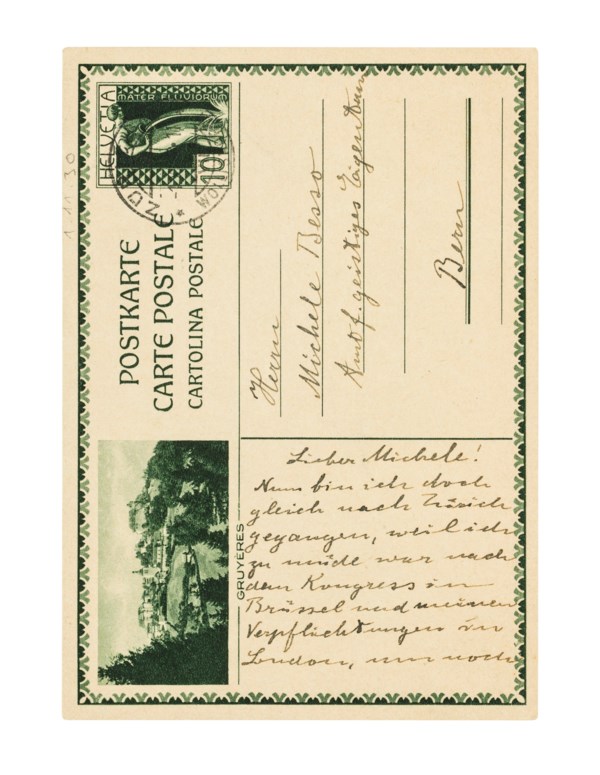 MATER FLUVIORUM
HELVETIA
10
1 11 30
POSTKARTE
CARTE POSTALE
CARTOLINA POSTALE
Herrn
Michele Besso
Amt f. geistiges Eigentum
Bern
GRUYÈRES
Lieber Michele!
Nun bin ich doch
gleich nach Zürich
gegangen, weil ich
zu müde war nach
dem Kongress in
Brüssel und meinen
Verpflichtungen in
London, um noch